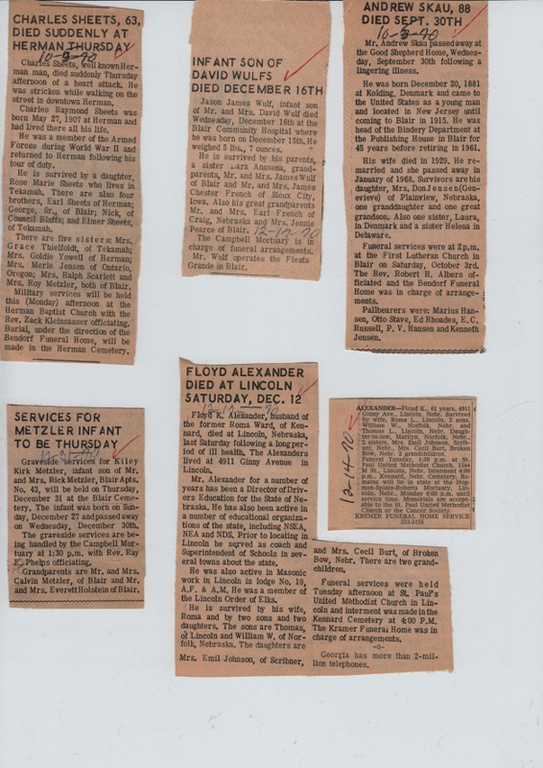 CHARLES SHEETS, 63,
DIED SUDDENLY AT
HERMAN THURSDAY
10-8-70
Charles Sheets, well known Her-
man man, died suddenly Thursday
afternoon of a heart attack. He
was stricken while walking on the
street in downtown Herman.
Charles Raymond Sheets was
born May 27, 1907 at Herman and
had lived there all his life.
He was a member of the Armed
Forces during World War II and
returned to Herman following his
tour of duty.
He is survived by a daughter,
Rose Marie Sheets who lives in
Tekamah. There are also four
brothers, Earl Sheets of Herman;
George, Sr., of Blair; Nick, of
Council Bluffs; and Elmer Sheets,
of Tekamah.
There are five sisters: Mrs.
Grace Thielfoldt, of Tekamah;
Mrs. Goldie Yowell of Herman;
Mrs. Merle Jensen of Ontario,
Oregon; Mrs. Ralph Scarlett and
Mrs. Roy Metzler, both of Blair.
Military services will be held
this (Monday) afternoon at the
Herman Baptist Church with the
Rev. Zack Kleinsasser officiating.
Burial, under the direction of the
Bendorf Funeral Home, will be
made in the Herman Cemetery.
INFANT SON OF
DAVID WULFS
DIED DECEMBER 16TH
Jason James Wulf, infant son
of Mr. and Mrs. David Wulf died
Wednesday, December 16th at the
Blair Community Hospital where
he was born on December 15th. He
weighed 5 lbs., 7 ounces.
He is survived by his parents,
a sister Lara Annsena, grand-
parents, Mr. and Mrs. James Wulf
of Blair and Mr. and Mrs. James
Chester French of Sioux City,
Iowa. Also his great grandparents
Mr. and Mrs. Earl French of
Craig, Nebraska and Mrs. Jennie
Pearce of Blair. 12-17-70
The Campbell Mortuary is in
charge of funeral arrangements.
Mr. Wulf operates the Fiesta
Grande in Blair.
ANDREW SKAU, 88
DIED SEPT. 30TH
10-8-70
Mr. Andrew Skau passed away at
the Good Shepherd Home, Wednes-
day, September 30th following a
lingering illness.
He was born December 20, 1881
at Kolding, Denmark and came to
the United States as a young man
and located in New Jersey until
coming to Blair in 1915. He was
head of the Bindery Department at
the Publishing House in Blair for
45 years before retiring in 1961.
His wife died in 1929. He re-
married and she passed away in
January of 1968. Survivors are his
daughter, Mrs. Don Jensen (Gen-
evieve) of Plainview, Nebraska,
one granddaughter and one great
grandson. Also one sister, Laura,
in Denmark and a sister Helena in
Delaware.
Funeral services were at 2 p.m.
at the First Lutheran Church in
Blair on Saturday, October 3rd.
The Rev. Robert H. Albers of-
ficiated and the Bendorf Funeral
Home was in charge of arrange-
ments.
Pallbearers were: Marius Han-
sen, Otto Stave, Ed Rhoades, E.C.
Russell, P. V. Hansen and Kenneth
Jensen.
SERVICES FOR
METZLER INFANT
TO BE THURSDAY
Graveside services for Kiley
Kirk Metzler, infant son of Mr.
and Mrs. Rick Metzler, Blair Apts.
No. 43, will be held on Thursday,
December 31 at the Blair Ceme-
tery. The infant was born on Sun-
day, December 27 and passed away
on Wednesday, December 30th.
The graveside services are be-
ing handled by the Campbell Mor-
tuary at 1:30 p.m. with Rev. Ray
E. Phelps officiating.
Grandparents are Mr. and Mrs.
Calvin Metzler, of Blair and Mr.
and Mrs. Everett Holstein of Blair.
FLOYD ALEXANDER
DIED AT LINCOLN
SATURDAY, DEC. 12
12-17-70
Floyd K. Alexander, husband of
the former Roma Ward, of Ken-
nard, died at Lincoln, Nebraska,
last Saturday following a long per-
iod of ill health. The Alexanders
lived at 4911 Ginny Avenue in
Lincoln.
Mr. Alexander for a number of
years has been a Director of Driv-
ers Education for the State of Ne-
braska. He has also been active in
a number of educational organiza-
tions of the state, including NSEA,
NEA and NDS. Prior to locating in
Lincoln he served as coach and
Superintendent of Schools in sev-
eral towns about the state.
He was also active in Masonic
work in Lincoln in lodge No. 19,
A.F. & A.M. He was a member of
the Lincoln Order of Elks.
He is survived by his wife,
Roma and by two sons and two
daughters. The sons are Thomas,
of Lincoln and William W. of Nor-
folk, Nebraska. The daughters are
Mrs. Emil Johnson, of Scribner,
and Mrs. Cecil Burt, of Broken
Bow, Nebr. There are two grand-
children.
Funeral services were held
Tuesday afternoon at St. Paul's
United Methodist Church in Lin-
coln and interment was made in the
Kennard Cemetery at 4:00 P.M.
The Kramer Funeral Home was in
charge of arrangements.
-o-
Georgia has more than 2-mil-
lion telephones.
12-14-70
ALEXANDER—Floyd K., 61 years, 4911
Ginny Ave., Lincoln, Nebr. Survived
by wife, Roma L., Lincoln, 2 sons,
William W., Norfolk, Nebr. and
Thomas L., Lincoln, Nebr. Daugh-
ter-in-law, Marilyn, Norfolk, Nebr.,
2 sisters, Mrs. Emil Johnson, Scrib-
ner, Nebr., Mrs. Cecil Burt, Broken
Bow, Nebr. 2 grandchildren.
Funeral Tuesday, 1:30 p.m. at St.
Paul United Methodist Church, 1144
M St., Lincoln, Nebr. Interment 4:00
p.m., Kennard, Nebr. Cemetery. Re-
mains will be in state at the
Mortuary, Lin-
coln, Nebr., Monday 6:00 p.m. until
service time. Memorials are accept-
able to the St. Paul United Methodist
Church or the Cancer Society.
KREMER FUNERAL HOME SERVICE